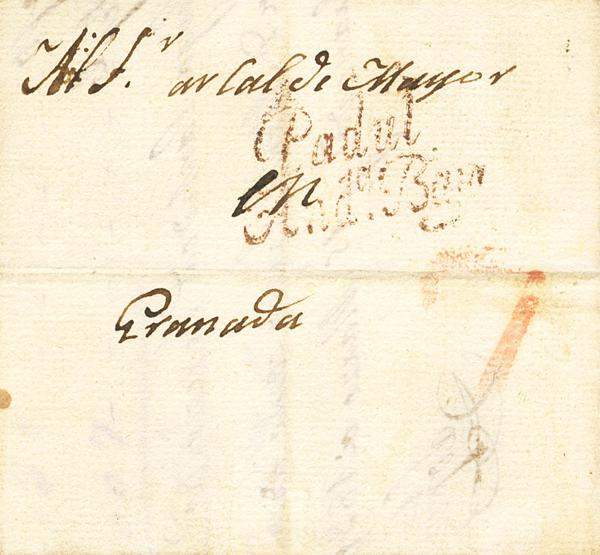 Al S.r arcalde Mayor
Padul.
en
And.da Baja
Granada